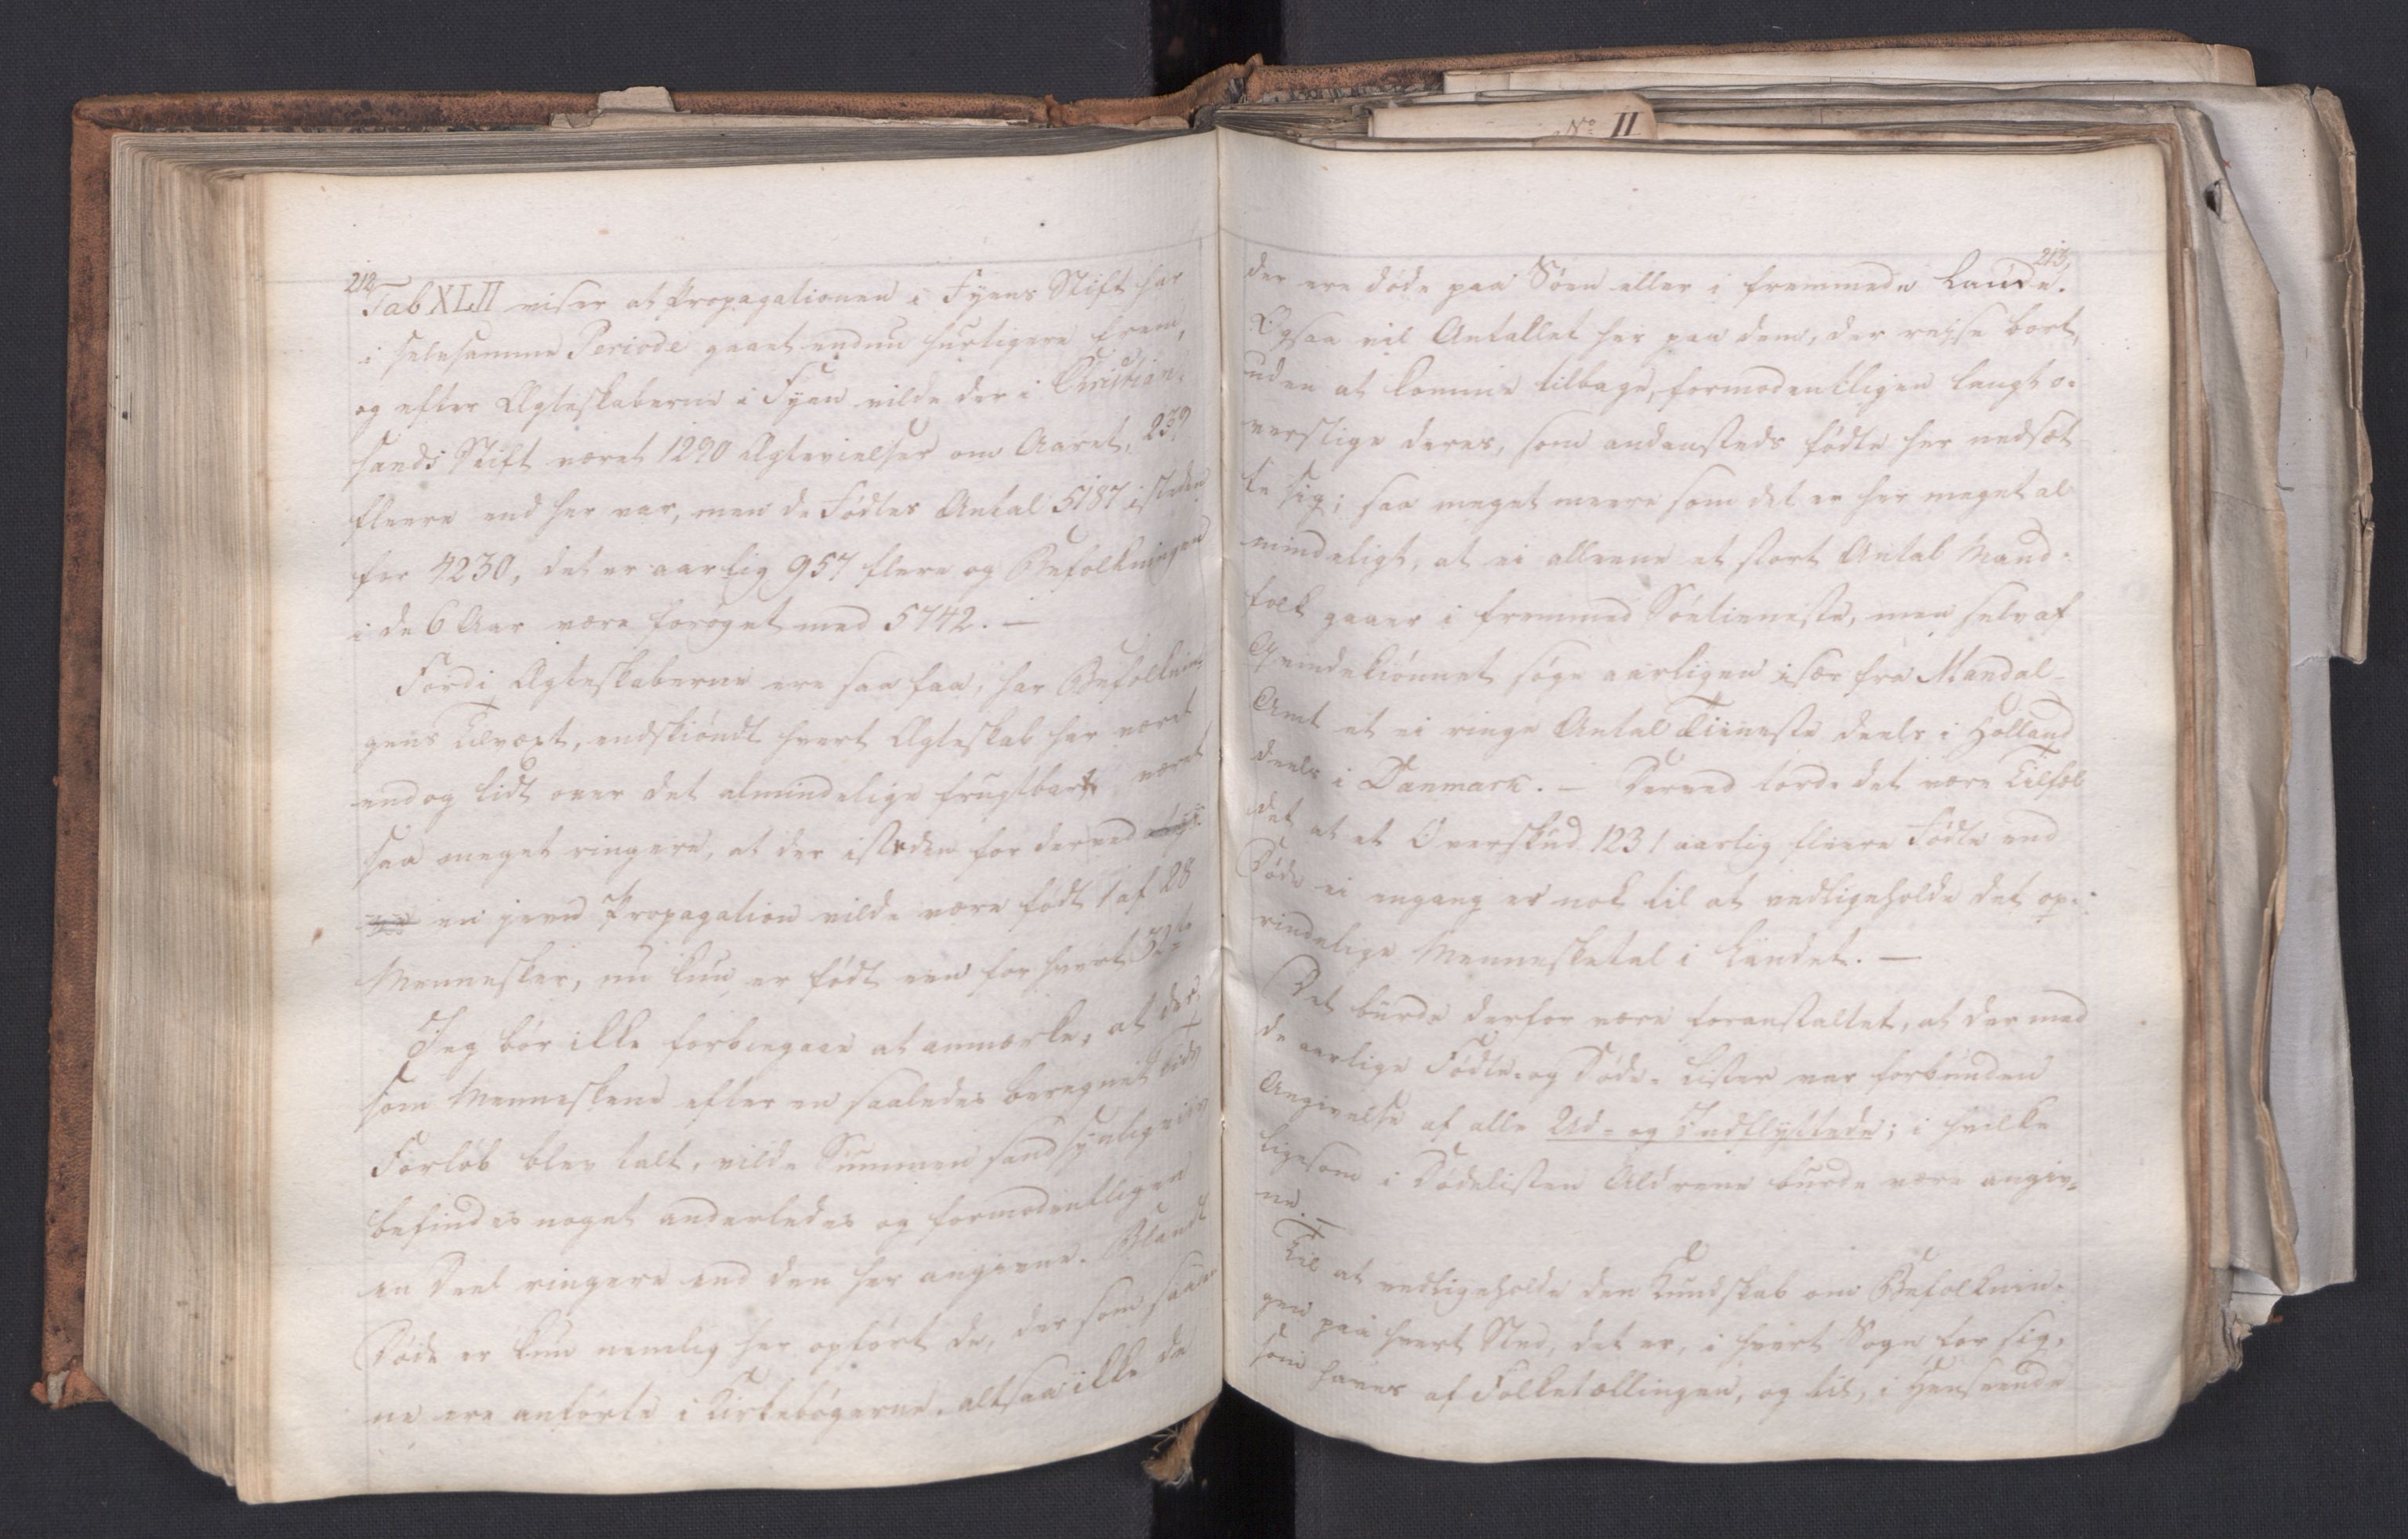 No II
212
Tab XLII viser at Propagationen i Fyens Stift har
i selvsamme Periode gaaet endnu hurtigere frem,
og efter Ægteskaberne i Fyen vilde der i Christian-
sands Stift været 1290 Ægtevielser om Aaret, 239
fleere end her var, men de Fødtes Antal 5187 isteden
for 4230, det er aarlig 957 flere og Befolkningen
i de 6 Aar være forøget med 5742. —
Fordi Ægteskaberne ere saa faa, har Befolknin-
gens Tilvæxt, endskiøndt hvert Ægteskab har været
endog lidt over det almindelige frugtbart, været
saa meget ringere, at der isteden for derved
en jevn Propagation vilde være født 1 af 28
Mennesker, nu kun er født een for hvert 32te
Jeg bør ikke forbiegaae at anmærke, at der-
som Menneskene efter en saaledes beregnet Tids
Forløb blev talt, vilde Summen sandsynligviis
befindes noget anderledes og formodentligen
en Deel ringere end den her angivne. Blandt
Døde er kun nemlig her opført de, der som saada-
ne ere anførte i Kirkebøgerne, altsaa ikke de
213
der ere døde paa Søen eller i fremmede Lande.
Ogsaa vil Antallet her paa dem, der reyse bort,
uden at komme tilbage, formodentligen langt o-
verstige deres, som andensteds fødte her nedsæt-
te sig; saa meget meere som det er her meget al
mindeligt, at ei alleene et stort Antal Mand-
folk gaaer i fremmed Søetieneste, men selv af
Qvindekiønnet søge aarligen især fra Mandal-
Amt et ei ringe Antal Tieneste deels i Holland
deels i Danmark. — Derved torde det være Tilfæl
det at et Overskud 1231 aarlig fleere Fødte end
Døde ei engang er nok til at vedligeholde det op-
rindelige Mennesketal i Landet. —
Det burde derfor være foranstaltet, at der med
de aarlige Fødte- og Døde-Lister var forbunden
Angivelse af alle Ud- og Indflyttede; i hvilke
ligesom i Dødelisten Aldrene burde være angiv-
ne. —
Til at vedligeholde den Kundskab om Befolknin-
gen paa hvert Sted, det er, i hvert Sogn for sig,
som haves af Folketællingen, og til, i Henseende